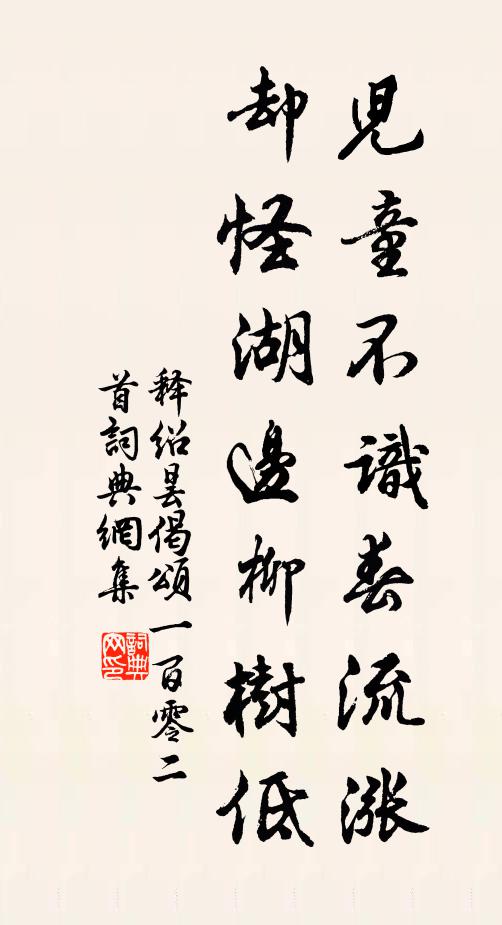 兒童不識春流漲
却怪湖邊柳樹低
释紹曇偈頌一百零二
首詞典網集
詞典
网印